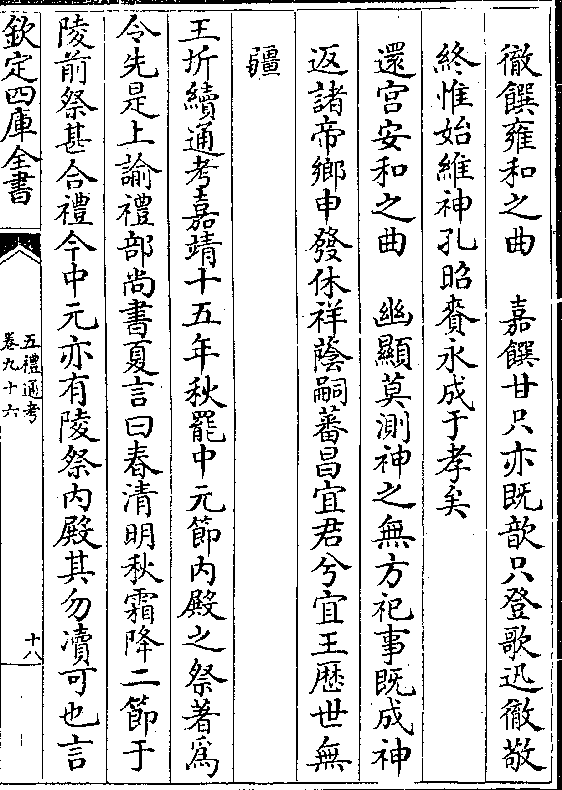 徹饌雍和之曲　嘉饌甘只亦既歆只登歌迅徹敬
終惟始維神孔昭賚永成于孝矣
還宫安和之曲　幽顯莫測神之無方祀事既成神
返諸帝鄉申發休祥蔭嗣蕃昌宜君兮宜王歴世無
疆
王圻續通考嘉靖十五年秋罷中元節内殿之祭著爲
令先是上諭禮部尚書夏言曰春清明秋霜降二節于
陵前祭甚合禮今中元亦有陵祭内殿其勿瀆可也言
欽定四庫全書
五禮通考
卷九十六
十八